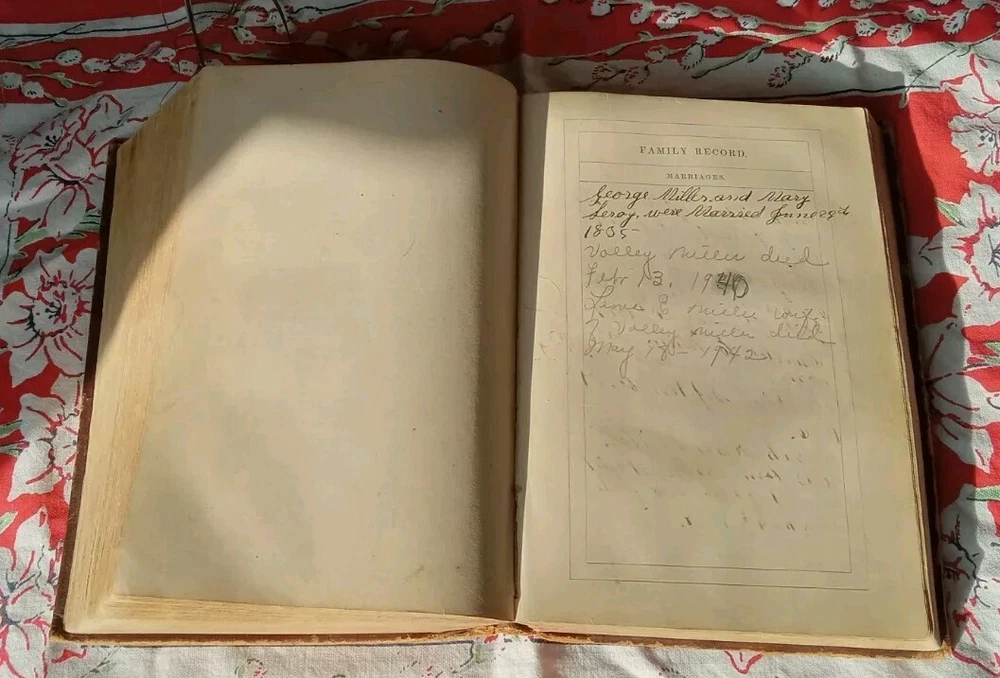 FAMILY RECORD.
MARRIAGES.
George Miller and Mary
Leroy, were Married June 29d
1835
Valley Miller died
Feb 13, 1940
E Miller wife
Valley Miller died
May 18 - 1942